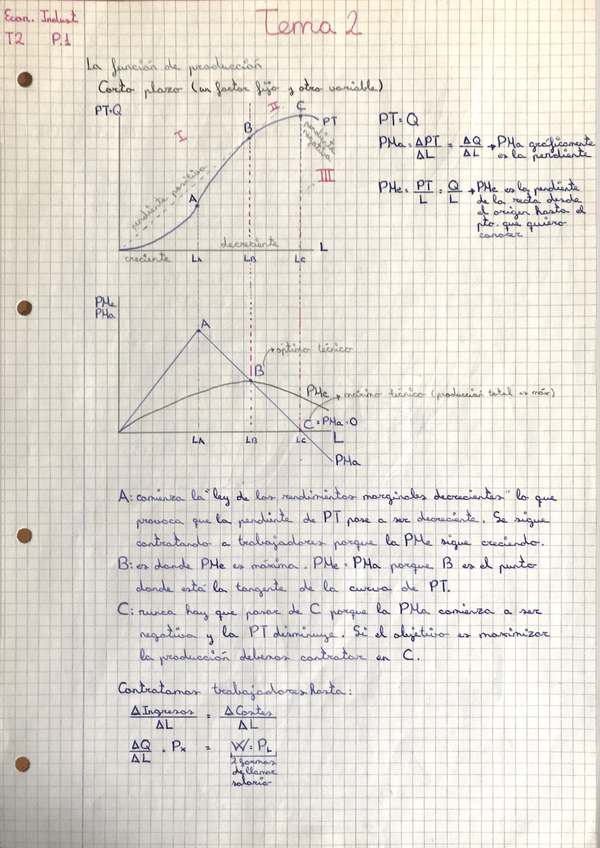 Econ. Indust
T2 P.1
Tema 2
La función de producción
Corto plazo (un factor fijo y otro variable)
PT=Q
I
II
III
A
B
C
PT
pendiente positiva
pendiente negativa
creciente
decreciente
LA
LB
LC
L
PT=Q
PMa = ΔPT/ΔL = ΔQ/ΔL → PMa gráficamente
es la pendiente
PMe = PT/L = Q/L → PMe es la pendiente
de la recta desde
el origen hasta el
pto. que quiero
conocer
PMe
PMa
A
B
óptimo técnico
PMe
máximo técnico (producción total es máx)
C = PMa=0
LA
LB
LC
L
PMa
A: comienza la "ley de los rendimientos marginales decrecientes" lo que
provoca que la pendiente de PT pase a ser decreciente. Se sigue
contratando a trabajadores porque la PMe sigue creciendo.
B: es donde PMe es máxima. PMe=PMa porque B es el punto
donde está la tangente de la curva de PT.
C: nunca hay que pasar de C porque la PMa comienza a ser
negativa y la PT disminuye. Si el objetivo es maximizar
la producción debemos contratar en C.
Contratamos trabajadores hasta:
ΔIngresos/ΔL = ΔCostes/ΔL
ΔQ/ΔL · Px = W=PL
2 formas
de llamar
salario